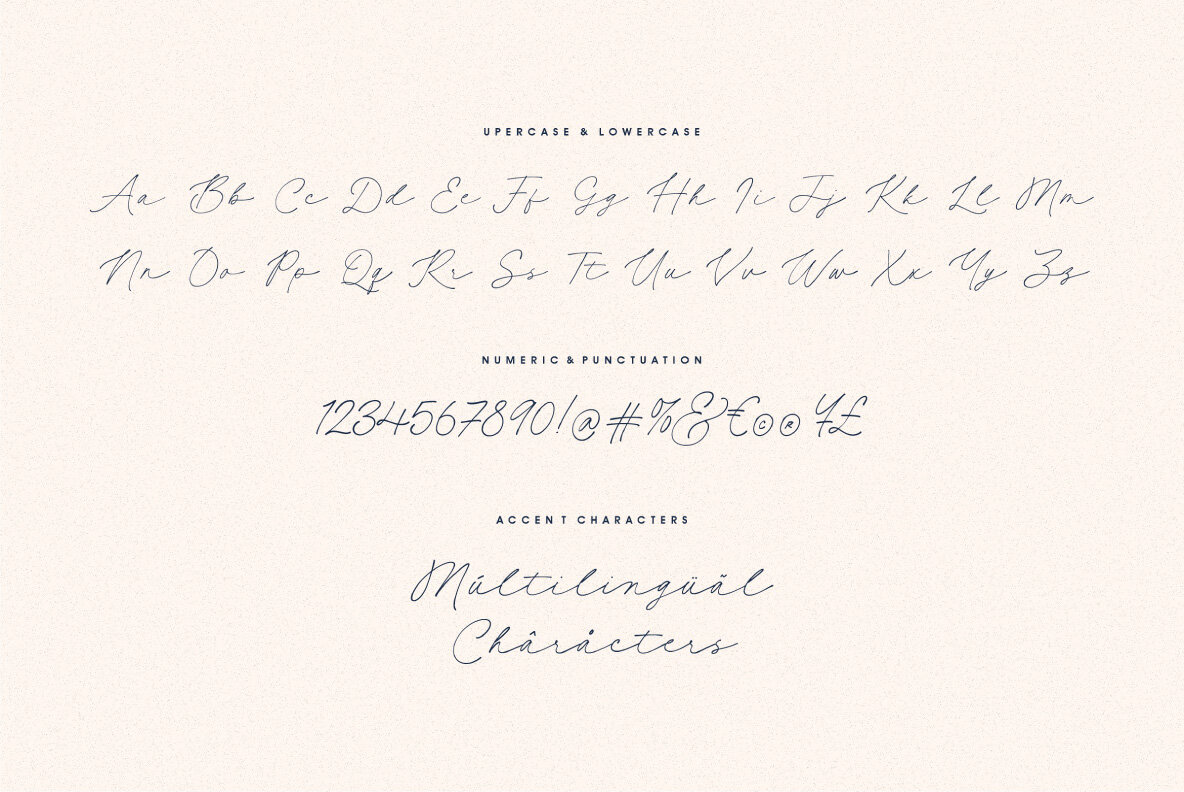 UPERCASE & LOWERCASE
Aa Bb Cc Dd Ee Ff Gg Hh Ii Jj Kk Ll Mm
Nn Oo Pp Qq Rr Ss Tt Uu Vv Ww Xx Yy Zz
NUMERIC & PUNCTUATION
1234567890!@#%&€©®¥£
ACCENT CHARACTERS
Múltilingüãl
Châråcters